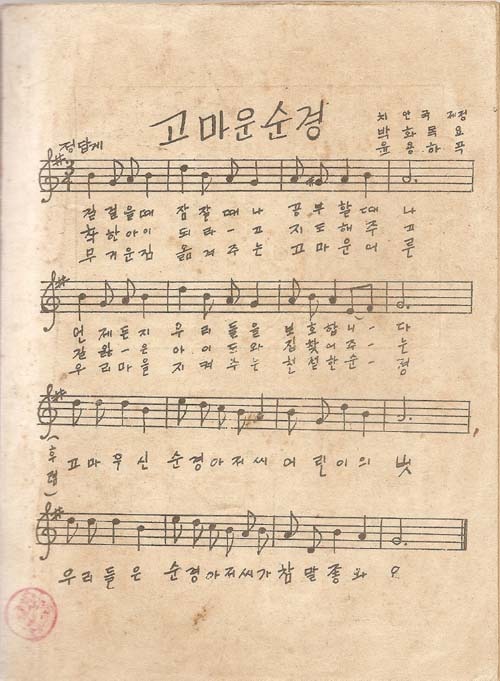 고마운순경
치안국 제정
박화목 요
윤용하 곡
정답게
길걸을때 잠잘때나 공부할때나
착한아이 되라-고 지도해주고
무거운짐 옮겨주는 고마운어른
언제든지 우리들을 보호합니-다
길잃-은 아이드와 집찾어주-는
우리마을 지켜주는 친절한순-경
(후렴)
고마우신 순경아저씨 어린이의 벗
우리들은 순경아저씨가 참말좋와요